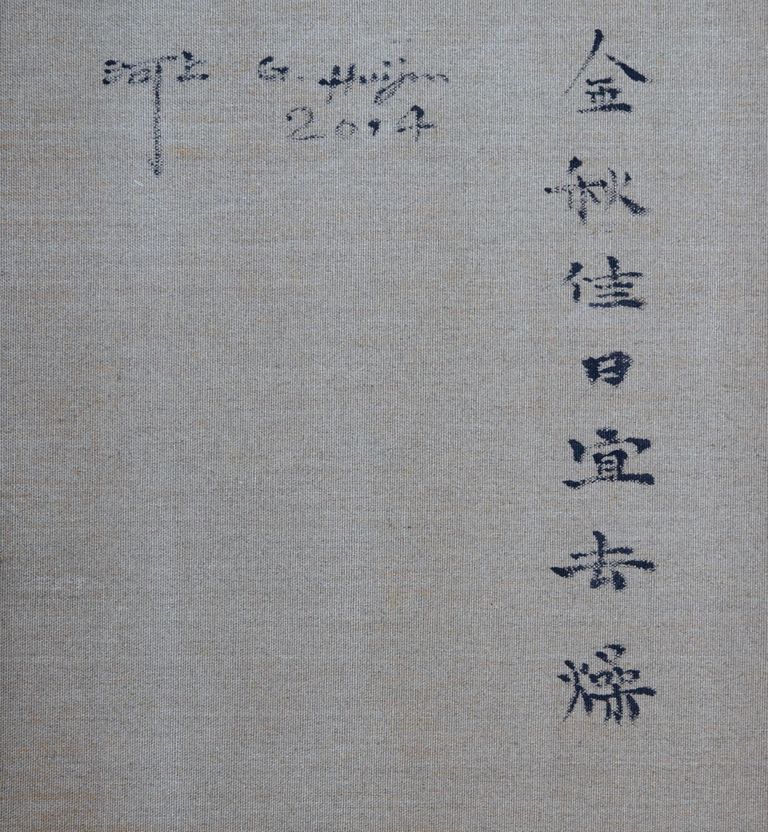 金秋佳日宜去燥
河上 G. Huijun
2014